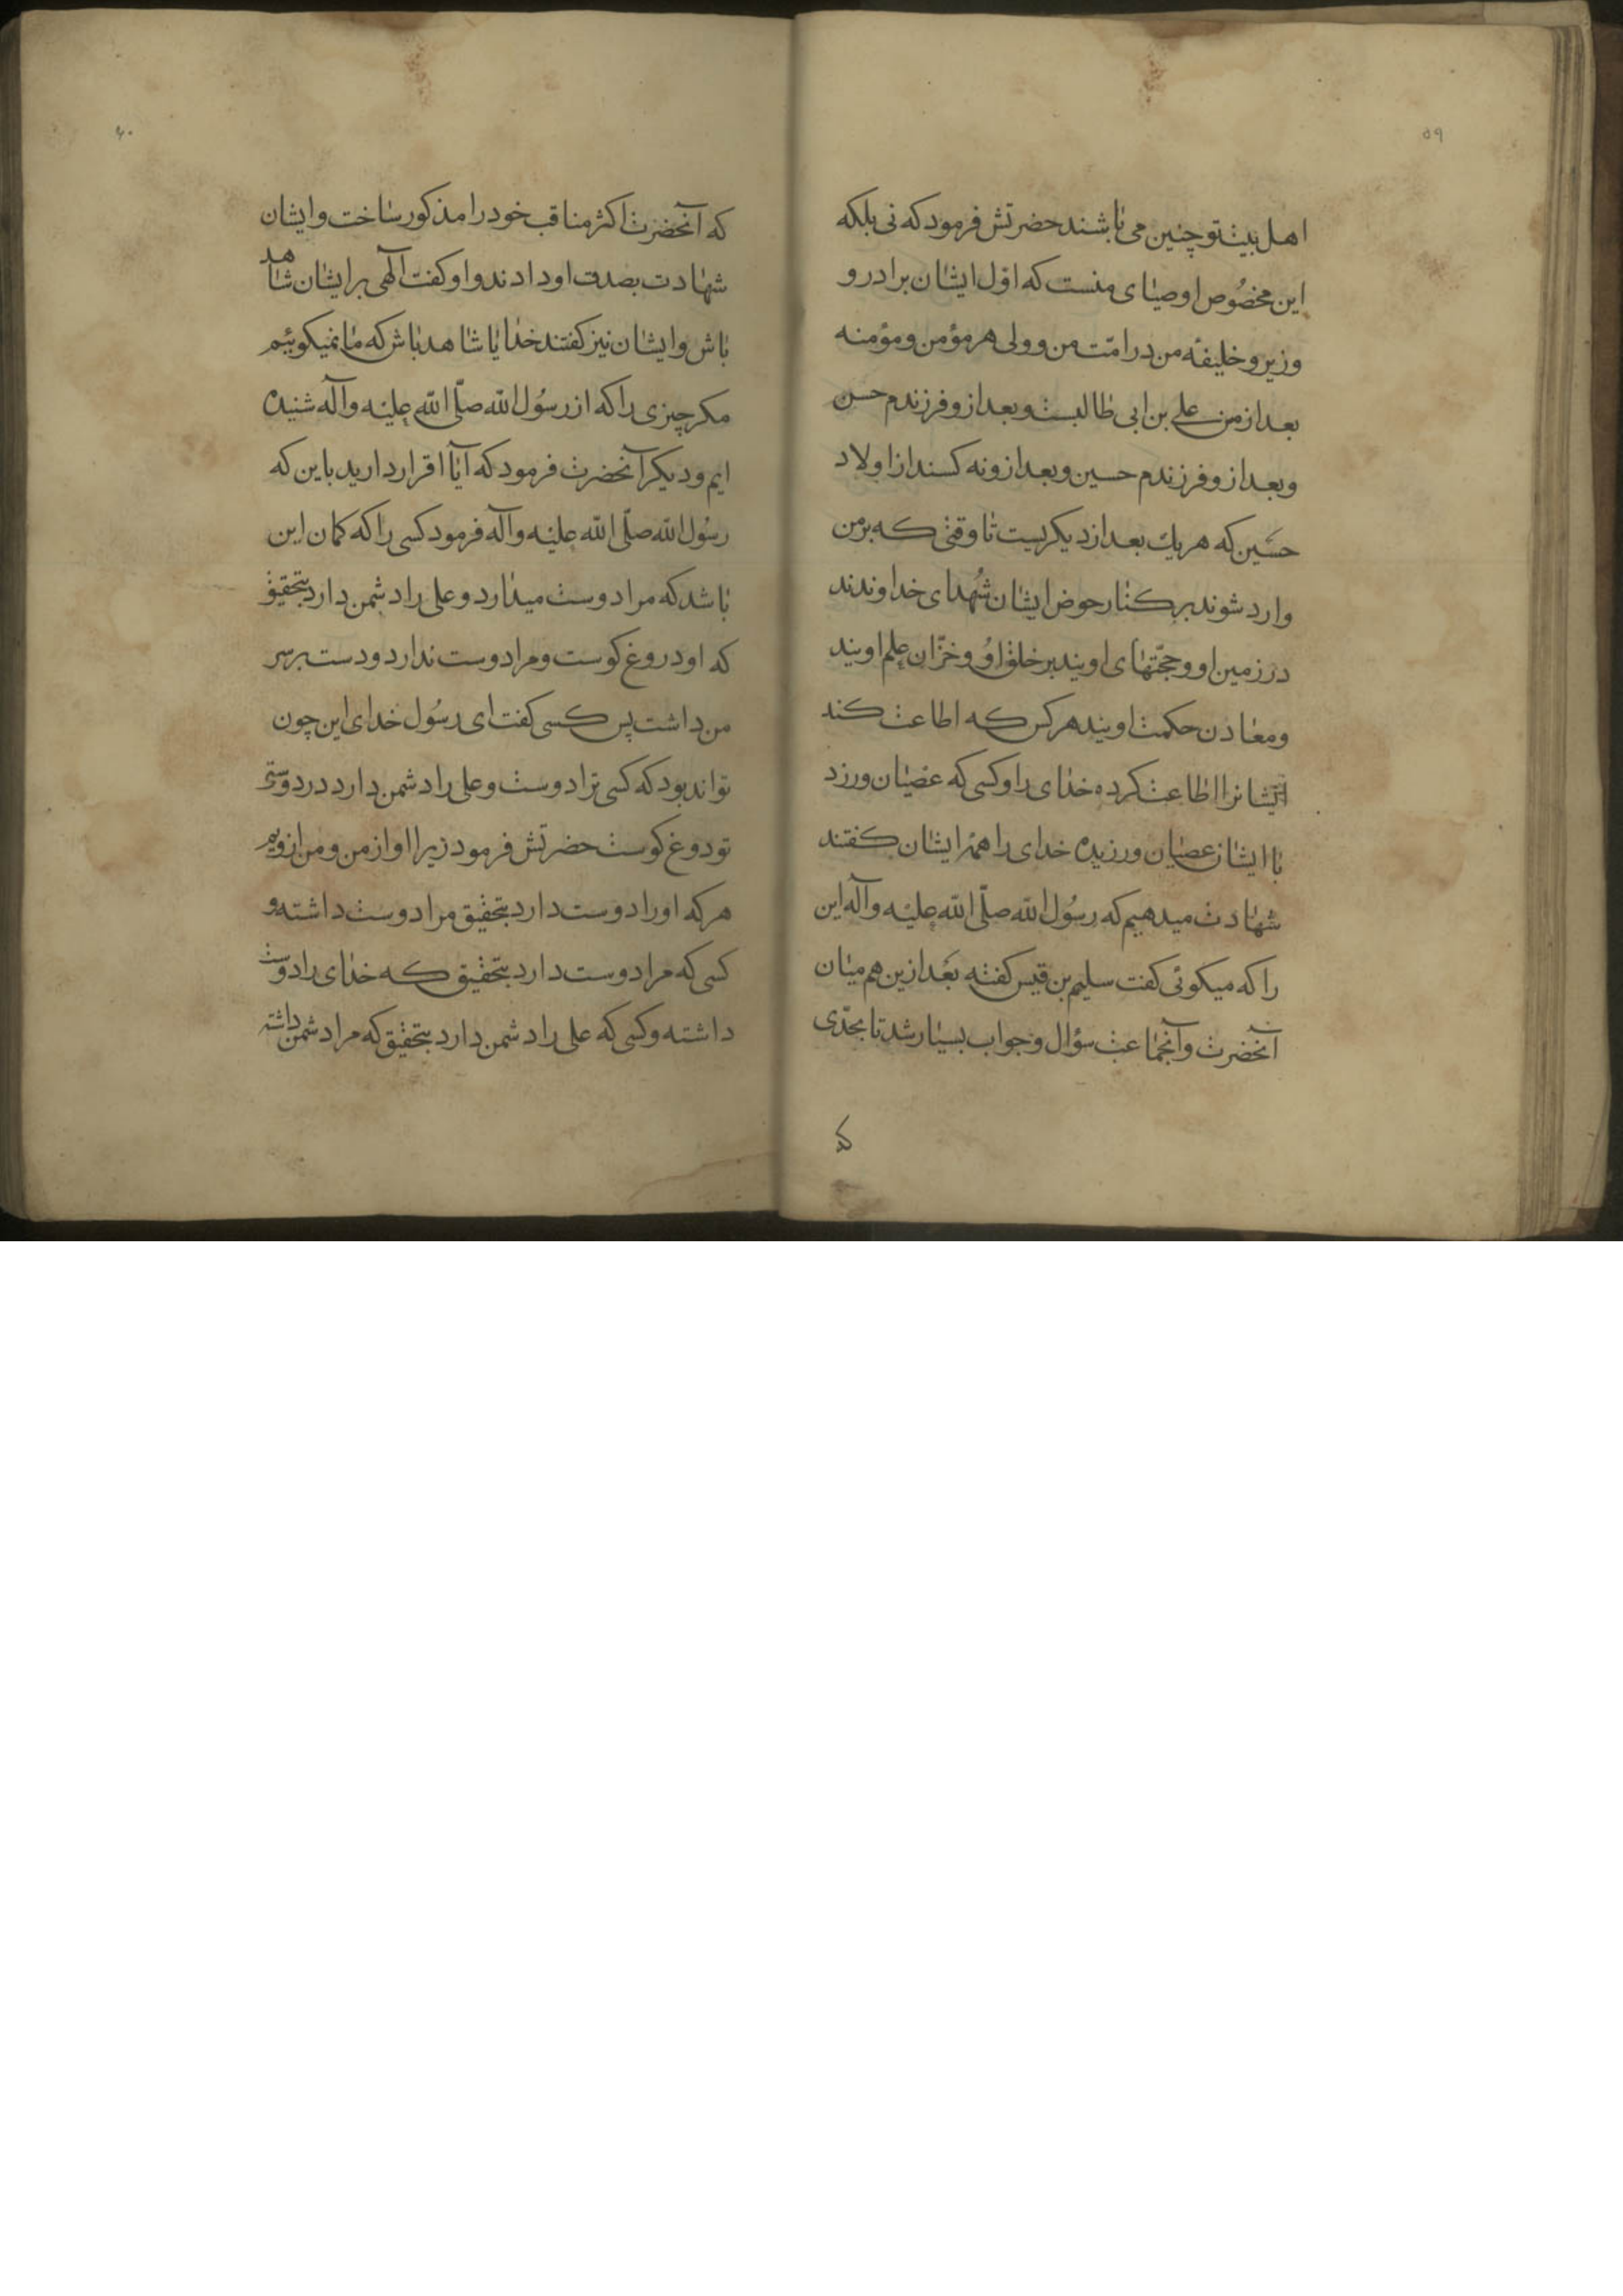 ۵۹
اهل بیت تو چنین می باشند حضرتش فرمود که نی بلکه
این مخصُوص اوصیای منست که اوّل ایشان برادر و
وزیر و خلیفهٔ من در امّت من و ولی هر مؤمن و مؤمنه
بعد از من علی بن ابی طالبست و بعد ازو فرزندم حسن
و بعد ازو فرزندم حسین و بعد ازو نه کسند از اولاد
حسَین که هر یك بعد از دیکریست تا وقتی که بر من
وارد شوند بر کنار حوض ایشان شُهدای خداوندند
در زمین او و حجّتهای اویند بر خلق اوُ و خزّان علم اویند
و معادن حکمت اویند هر کس که اطاعت کند
ایشانرا اطاعت کرده خدای را و کسی که عصیان ورزد
با ایشان عصیان ورزیده خدای را همهٔ ایشان کفتند
شهادت میدهیم که رسُول الله صلّی الله علیه وآله این
را که میکوئی کفت سلیم بن قیس کفته بَعد ازین هم میان
آنحضرت و آنجماعت سؤال و جواب بسیار شد تا بحدّی
که
۶۰
که آنحضرت اکثر مناقب خود را مذکور ساخت و ایشان
شهادت بصدق او دادند و او کفت آلهی بر ایشان شاهد
باش و ایشان نیز کفتند خدایا شاهد باش که ما نمیکوییٔم
مکر چیزی را که از رسُول الله صلّی الله علیه وآله شنیده
ایم و دیکر آنحضرت فرمود که آیا اقرار دارید باین که
رسُول الله صلّی الله علیه وآله فرمود کسی را که کمان این
باشد که مرا دوست میدارد و علی را دشمن دارد بتحقیق
که او دروغ کوست و مرا دوست ندارد و دست بر سر
من داشت پس کسی کفت ای رسُول خدای این چون
تواند بود که کسی ترا دوست و علی را دشمن دارد در دوستی
تو دوغ کوست حضرتش فرمود زیرا او از من و من ازویم
هر که او را دوست دارد بتحقیق مرا دوست داشته و
کسی که مرا دوست دارد بتحقیق که خدای را دوست
داشته و کسی که علی را دشمن دارد بتحقیق که مرا دشمن داشته